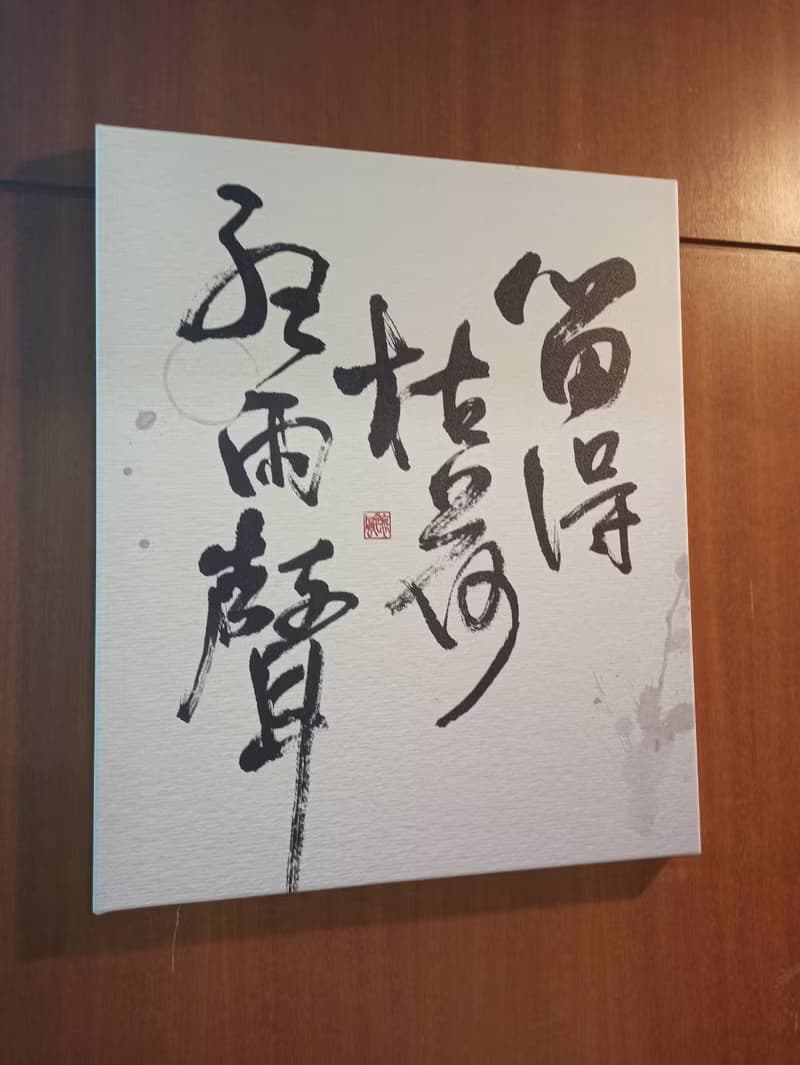 留得
枯荷
聽雨聲